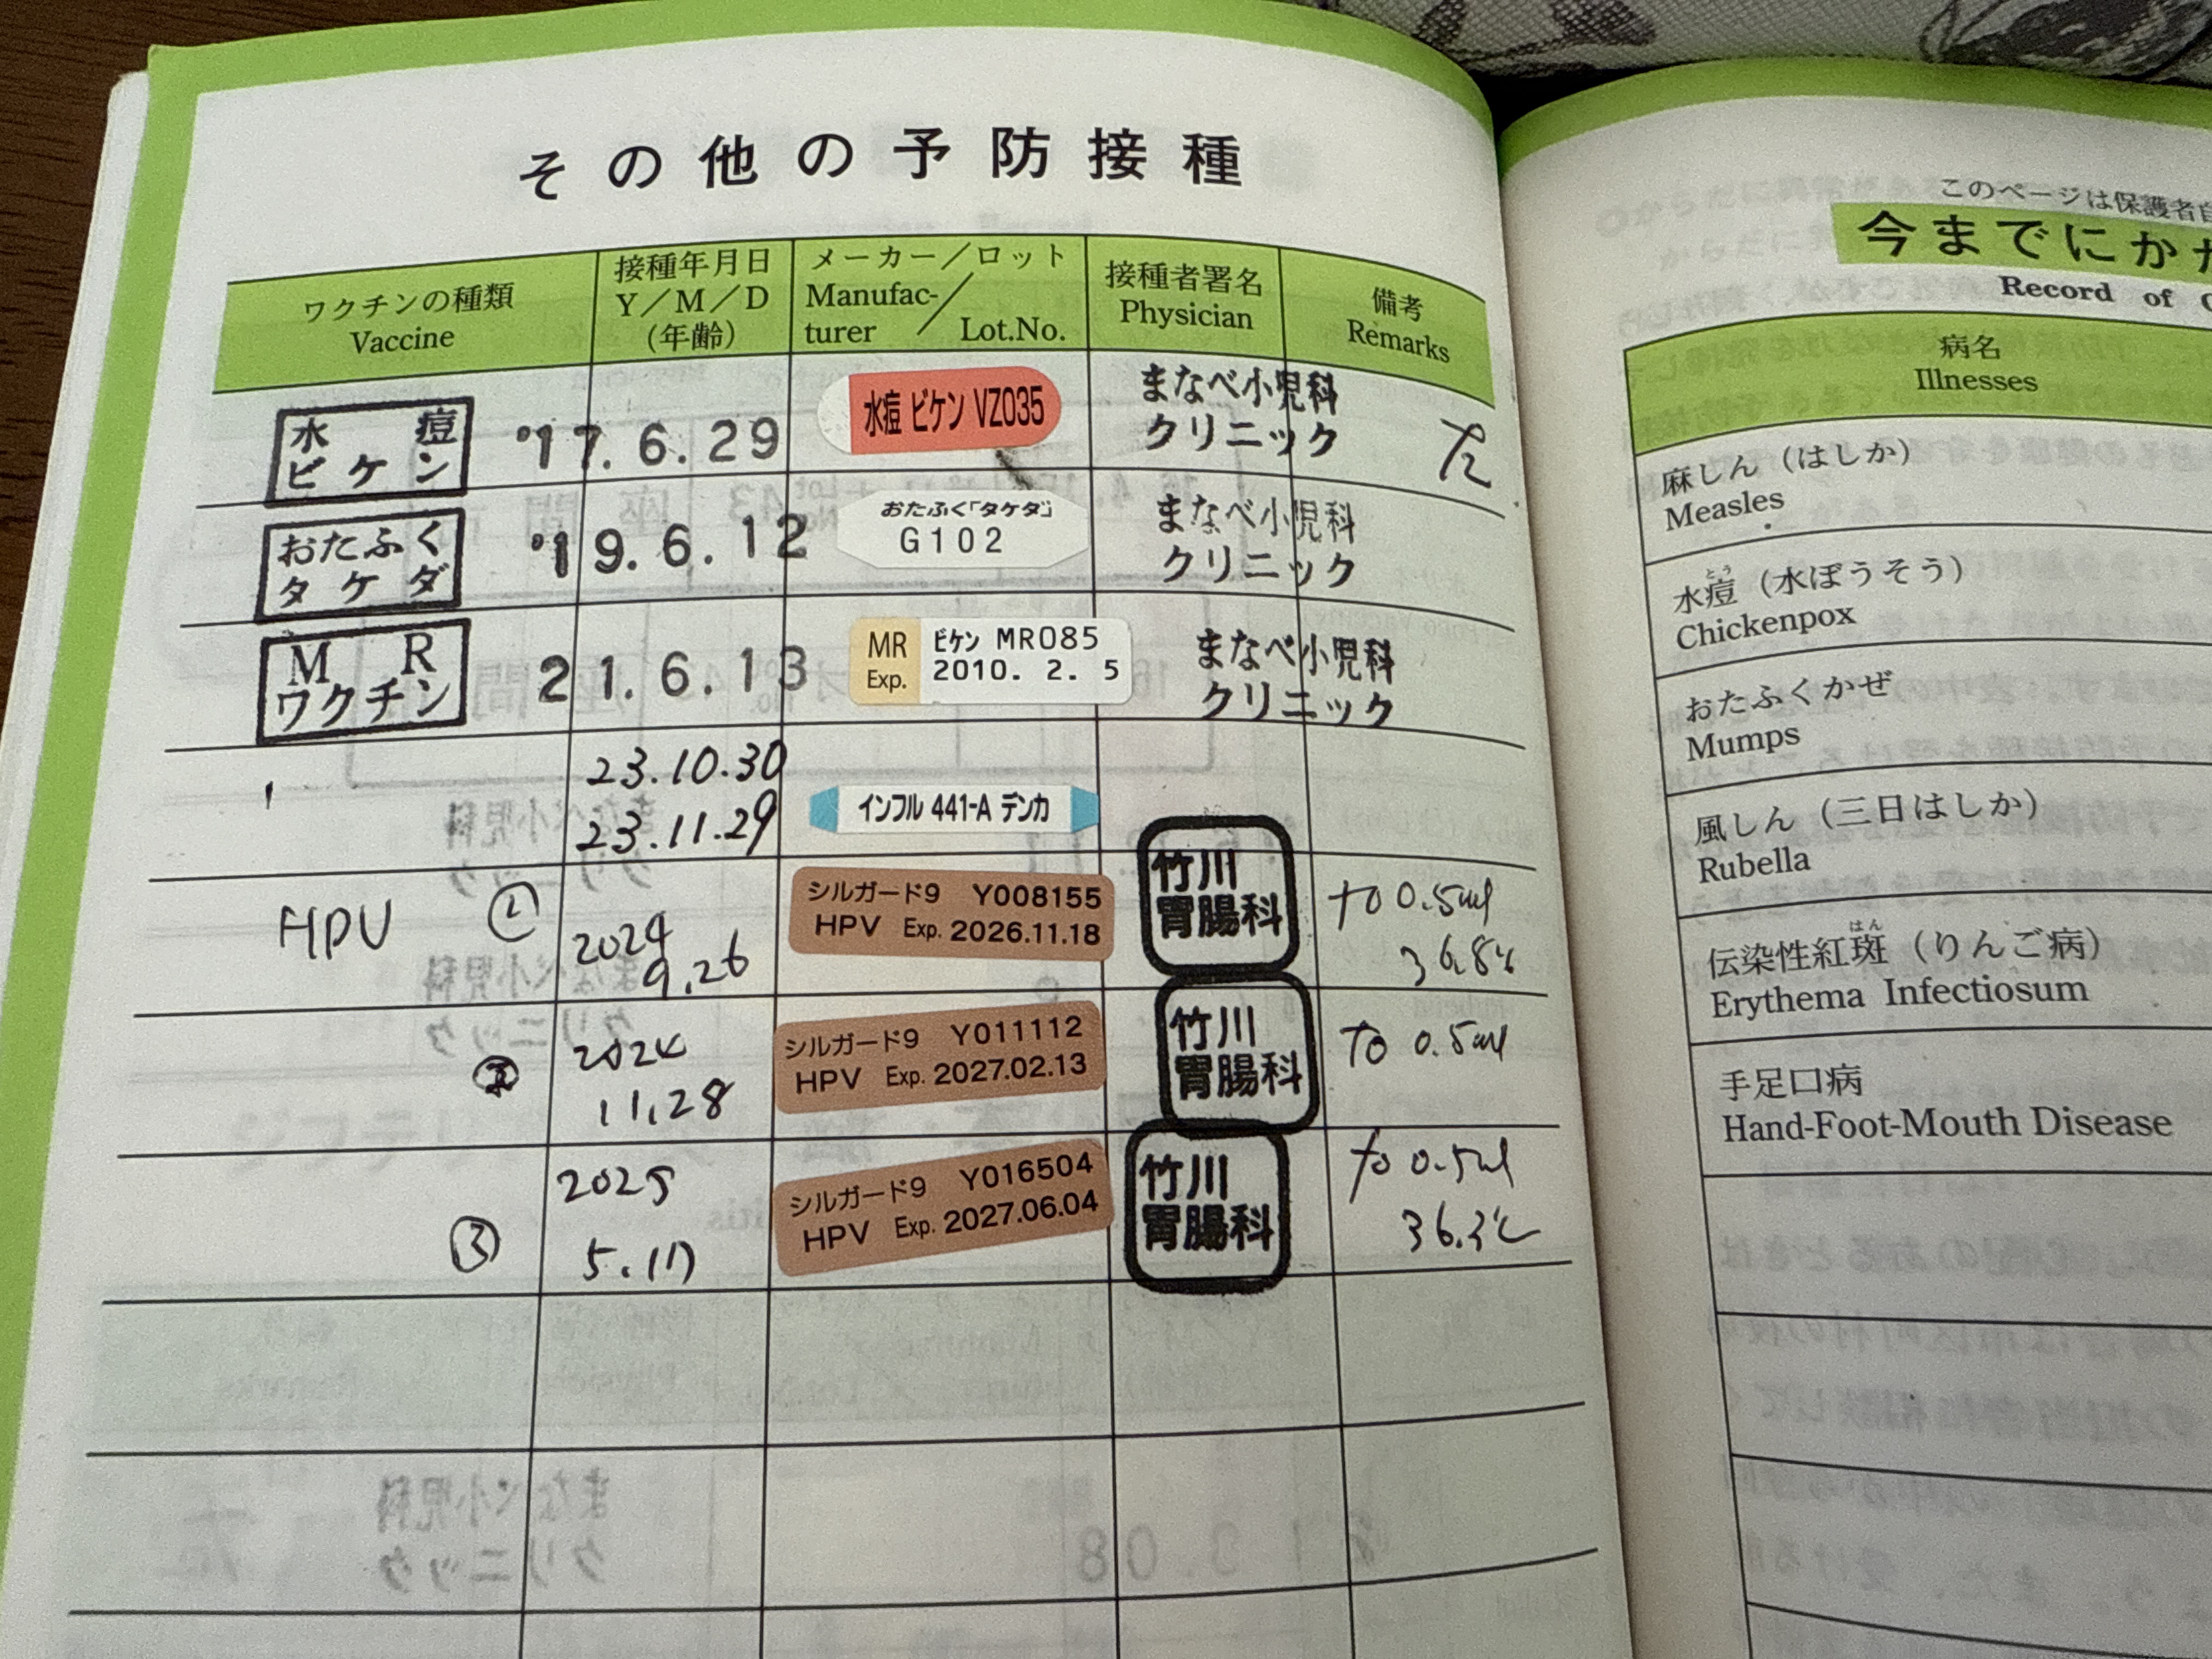 その他の予防接種
ワクチンの種類
Vaccine
接種年月日
Y／M／D
（年齢）
メーカー／ロット
Manufac-
turer ／ Lot.No.
接種者署名
Physician
備考
Remarks
水痘
ビケン
'17.6.29
水痘 ビケン VZ035
まなべ小児科
クリニック
おたふく
タケダ
'19.6.12
おたふく「タケダ」
G102
まなべ小児科
クリニック
MR
ワクチン
21.6.13
MR
Exp.
ビケン MR085
2010. 2. 5
まなべ小児科
クリニック
23.10.30
23.11.29
インフル 441-A デンカ
HPV ①
2024
9.26
シルガード9 Y008155
HPV Exp. 2026.11.18
竹川
胃腸科
0.5ml
36.8℃
②
2024
11.28
シルガード9 Y011112
HPV Exp. 2027.02.13
竹川
胃腸科
0.5ml
③
2025
5.17
シルガード9 Y016504
HPV Exp. 2027.06.04
竹川
胃腸科
0.5ml
36.3℃
このページは保護者
今までにか
Record of
病名
Illnesses
麻しん（はしか）
Measles
水痘（水ぼうそう）
とう
Chickenpox
おたふくかぜ
Mumps
風しん（三日はしか）
Rubella
伝染性紅斑（りんご病）
はん
Erythema Infectiosum
手足口病
Hand-Foot-Mouth Disease